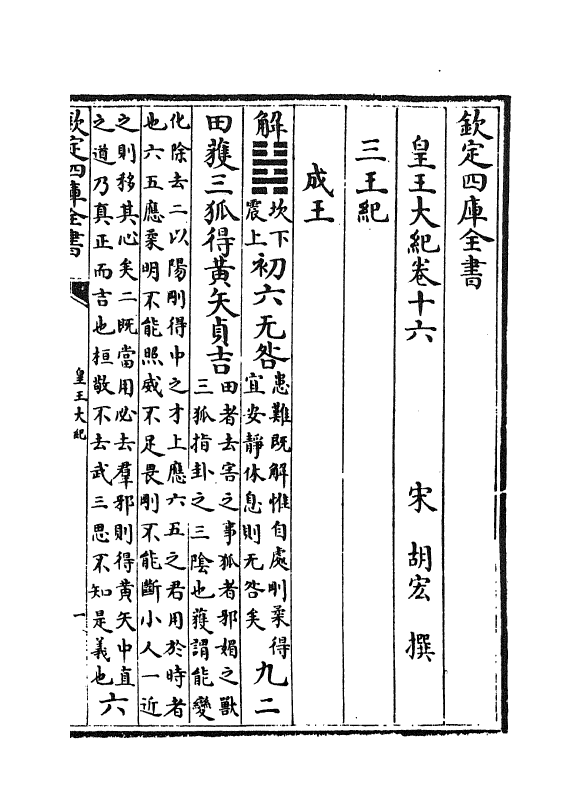 欽定四庫全書
皇王大紀卷十六
宋 胡宏 撰
三王紀
成王
解䷧坎下
震上初六无咎患難既解惟自處剛柔得
宜安静休息則无咎矣九二
田獲三狐得黃矢貞吉田者去害之事狐者邪媚之獸
三狐指卦之三陰也獲謂能變
化除去二以陽剛得中之才上應六五之君用於時者
也六五應柔明不能照威不足畏剛不能斷小人一近
之則移其心矣二既當用必去羣邪則得黃矢中直
之道乃真正而吉也桓敬不去武三思不知是義也六
欽定四庫全書
皇王大紀
一